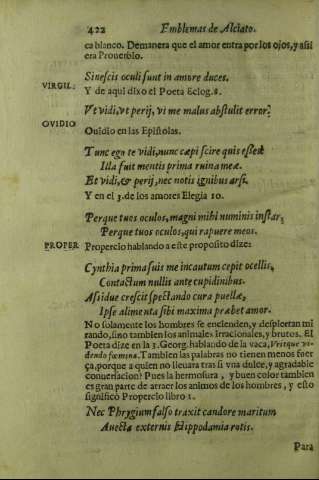 422 Emblemas de Alciato.
ca blanco. Demanera que el amor entra por los ojos, y assi
era Prouerbio.
Sinescis oculi sunt in amore duces.
VIRGIL: Y de aqui dixo el Poeta Eclog. 8.
Vt vidi, vt perij, vt me malus abstulit error?
OVIDIO
Ouidio en las Epistolas.
Tunc ego te vidi, nunc cœpi scire quis esses
Illa fuit mentis prima ruina meæ.
Et vidi, & perij, nec notis ignibus arsi.
Y en el 3. de los amores Elegia 10.
Perque tuos oculos, magni mihi numinis instar,
Perque tuos oculos, qui rapuere meos.
PROPER Propercio hablando a este proposito dize:
Cynthia prima suis me incautum cepit ocellis,
Contactum nullis ante cupidinibus.
Assidue crescit spectando cura puellæ,
Ipse alimenta sibi maxima præbet amor.
No solamente los hombres se encienden, y despiertan mi
rando, sino tambien los animales irracionales, y brutos. El
Poeta dize en la 3. Georg. hablando de la vaca, Vritque vi-
dendo fœmina. Tambien las palabras no tienen menos fuer
ça, porque a quien no lleuara tras si vna dulce, y agradable
conuersacion? Pues la hermosura, y buen color tambien
es gran parte de atraer los animos de los hombres, y esto
significò Propercio libro 1.
Nec Phrygium falso traxit candore maritum
Auecta externis Hippodamia rotis.
Para